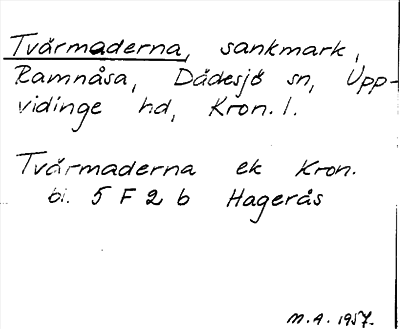 Tvärmaderna, sankmark,
Ramnåsa, Dädesjö sn, Upp-
vidinge hd, Kron. l.
Tvärmaderna ek Kron.
bl. 5 F 2 b Hagerås
M. A. 1957.